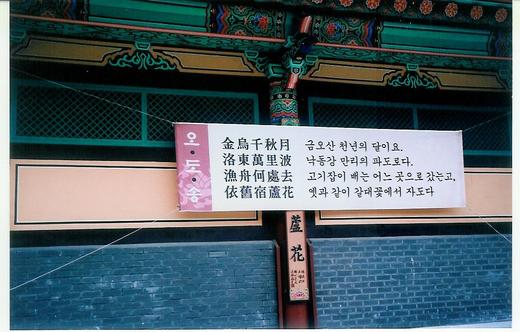 오·도·송
金烏千秋月 금오산 천년의 달이요.
洛東萬里波 낙동강 만리의 파도로다.
漁舟何處去 고기잡이 배는 어느 곳으로 갔는고,
依舊宿蘆花 옛과 같이 갈대꽃에서 자도다
蘆花